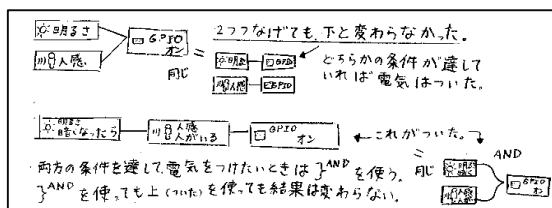 明るさ
GPIO
オン
人感
2つつなげても、下と変わらなかった。
同じ
明るさ
GPIO
人感
GPIO
どちらかの条件が達して
いれば電気はついた。
明るさ
暗くなったら
人感
人がいる
GPIO
オン
これがついた。
両方の条件を達して、電気をつけたいときは}ANDを使う。
}ANDを使っても上(ついた)を使っても結果は変わらない。
同じ
AND
GPIO
オン